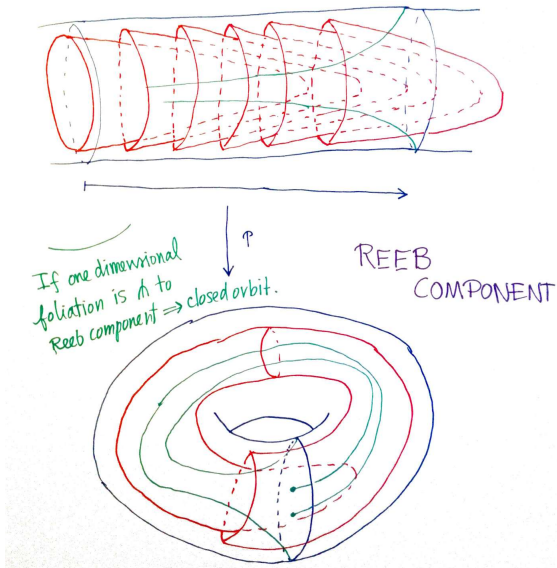 p
If one dimensional
foliation is ⋔ to
Reeb component ⇒ closed orbit.
REEB
COMPONENT